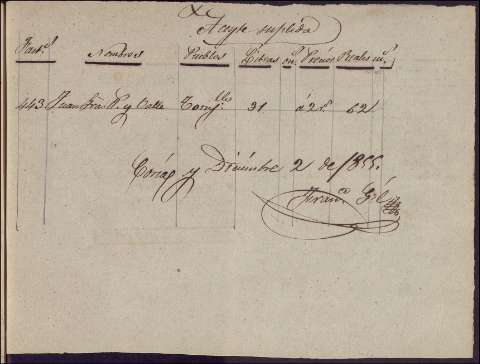 Aceyte suplido
Part.s Nombres Pueblos Libras on.s Precios Reales m.s
443. Juan Fra. P. y Calle Torrej.llo 31 á 2 r. 62
Corias y Diciembre 2 de 1855.
Fran.co Gil